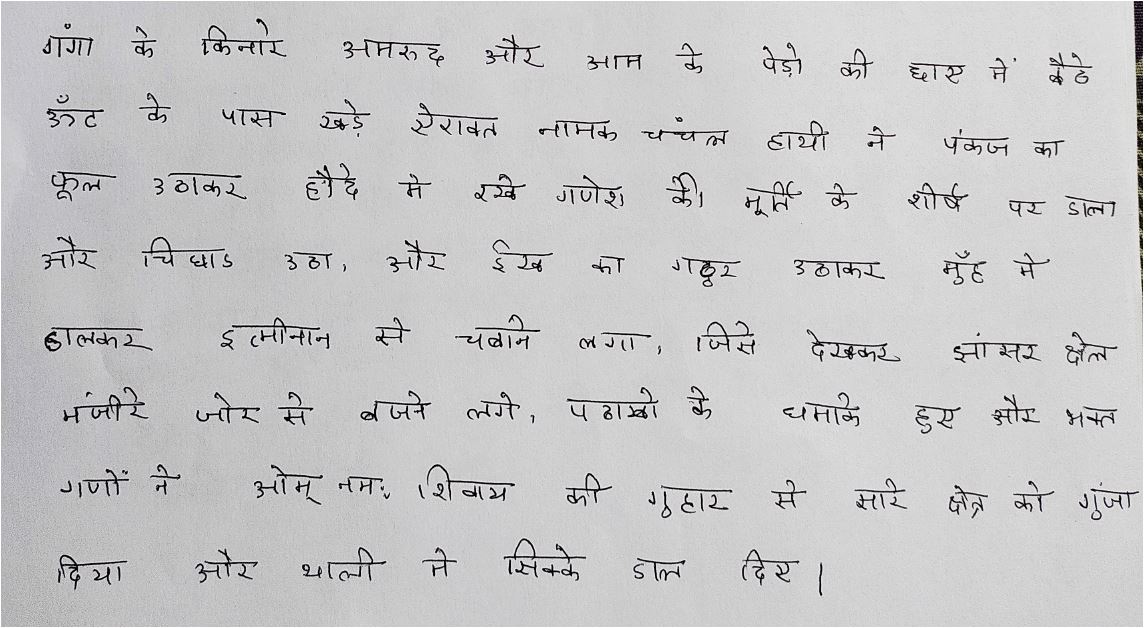 गंगा के किनारे अमरुद और आम के पेड़ो की छाए में बैठे
ऊँट के पास खड़े ऐरावत नामक चंचल हाथी ने पंकज का
फूल उठाकर हौदे मे रखे गणेश की मूर्ति के शीर्ष पर डाला
और चिघाड उठा, और ईख का गठ्ठर उठाकर मुँह मे
डालकर इत्मीनान से चबाने लगा, जिसे देखकर झांसर ढोल
मंजीरे जोर से बजने लगे, पटाखो के धमाके हुए और भक्त
गणों ने ओम् नमः शिवाय की गुहार से सारे क्षेत्र को गुंजा
दिया और थाली मे सिक्के डाल दिए।